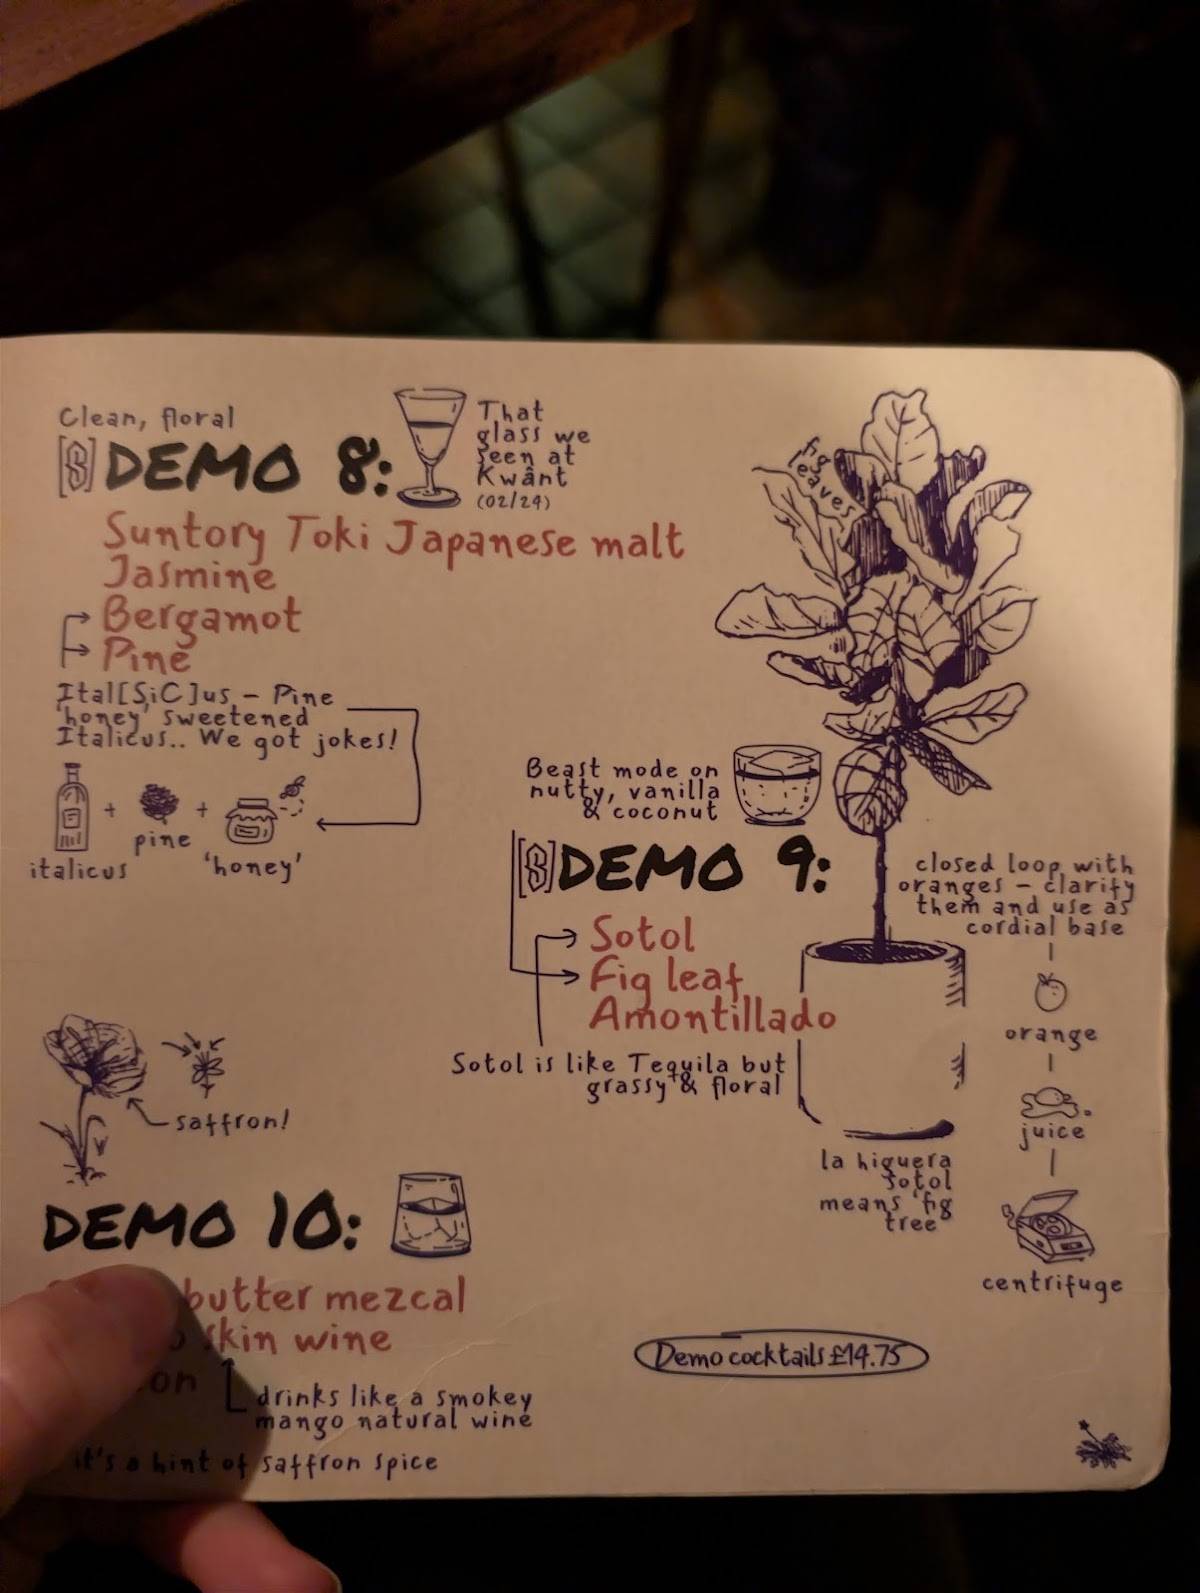 Clean, floral
[S] DEMO 8:
That
glass we
seen at
Kwânt
(02/24)
Suntory Toki Japanese malt
Jasmine
Bergamot
Pine
Ital[SiC]us – Pine
'honey' sweetened
Italicus.. We got jokes!
+
+
italicus
pine
'honey'
fig
leaves
Beast mode on
nutty, vanilla
& coconut
[S] DEMO 9:
Sotol
Fig leaf
Amontillado
Sotol is like Tequila but
grassy & floral
closed loop with
oranges – clarify
them and use as
cordial base
orange
juice
centrifuge
la higuera
sotol
means 'fig
tree'
saffron!
DEMO 10:
butter mezcal
skin wine
on
drinks like a smokey
mango natural wine
it's a hint of saffron spice
Demo cocktails £14.75